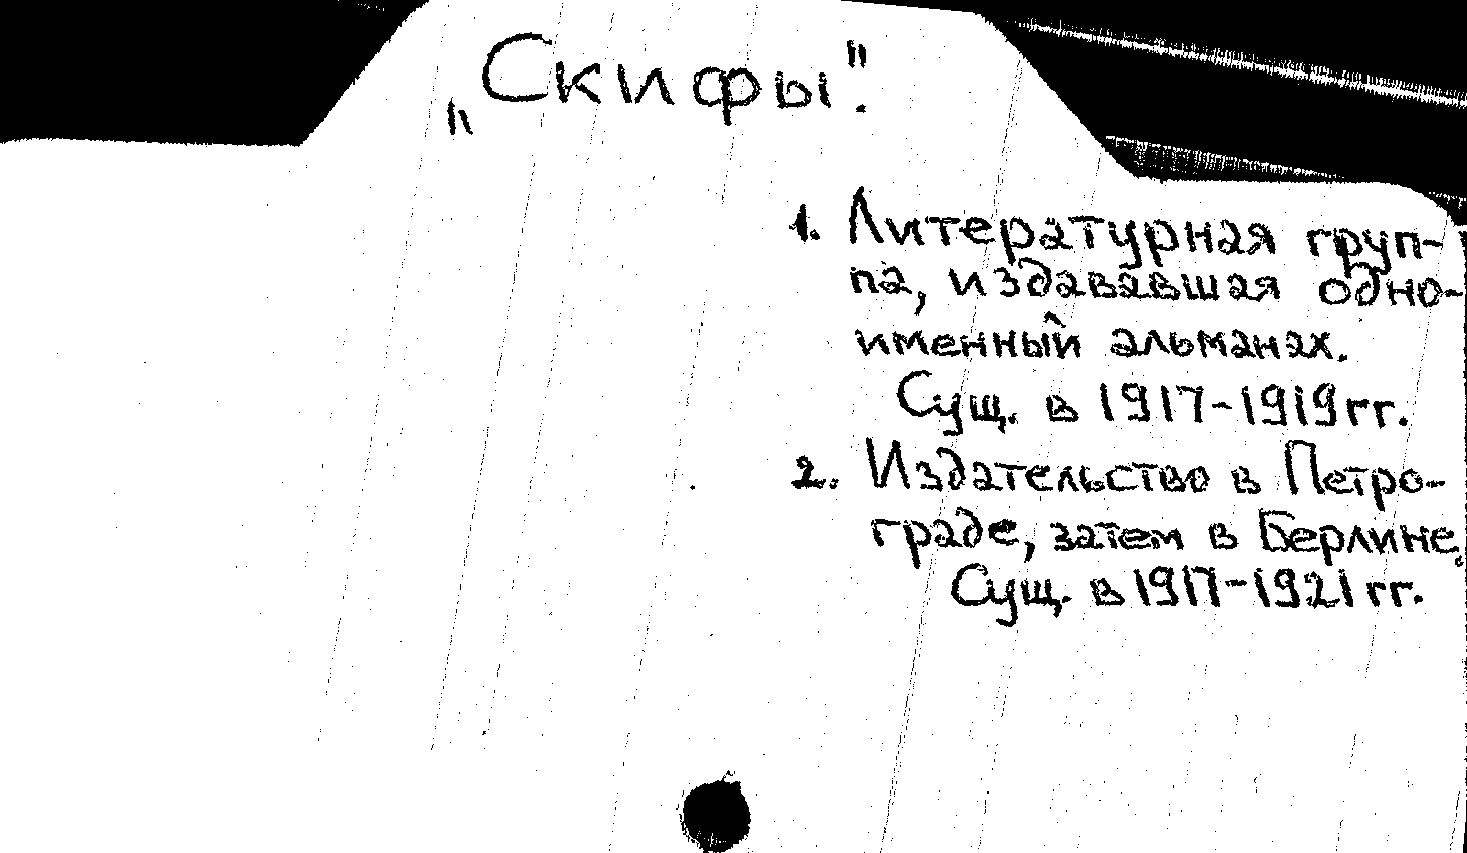 „Скифы".
1. Литературная груп-
па, издававшая одно-
именный альманах.
Сущ. в 1917-1919 гг.
2. Издательство в Петро-
граде, затем в Берлине.
Сущ. в 1917-1921 гг.